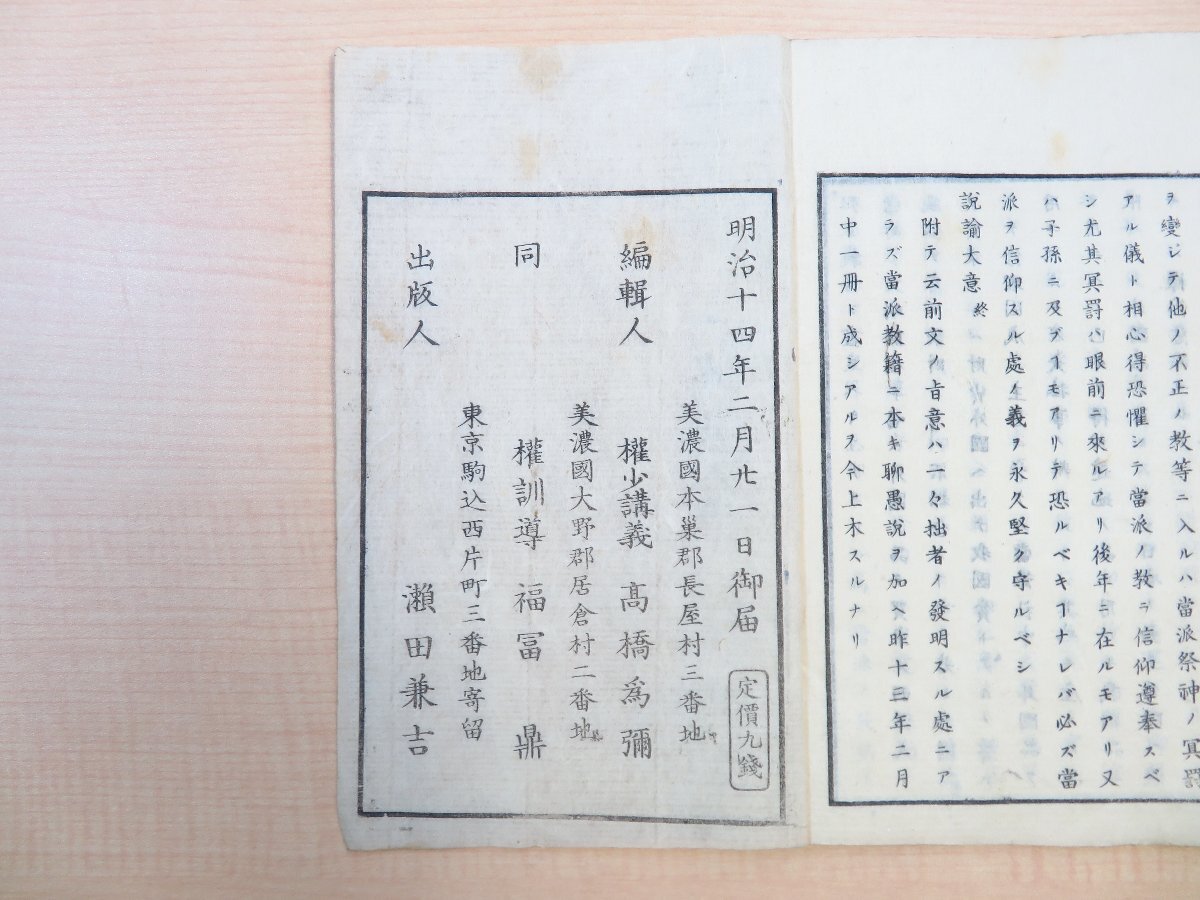 ヲ變ジテ他ノ不正ノ教等ニ入ルハ當派祭神ノ冥罸
アル儀ト相心得恐懼シテ當派ノ教ヲ信仰遵奉スベ
シ尤其冥罸ハ眼前ニ來ルアリ後年ニ在ルモアリ又
ハ子孫ニ及ブヿモアリテ恐ルベキヿナレバ必ズ當
派ヲ信仰スル處ノ義ヲ永久堅ク守ルベシ
說諭大意 終
附テ云前文ノ旨意ハ一々拙者ノ發明スル處ニア
ラズ當派教籍ニ本キ聊愚說ヲ加ヘ昨十三年二月
中一冊ト成シアルヲ令上木スルナリ
明治十四年二月廿一日御届 定價九錢
美濃國本巢郡長屋村三番地
編輯人 權少講義 髙橋爲彌
美濃國大野郡居倉村二番地
同 權訓導 福冨鼎
東京駒込西片町三番地寄留
出版人 瀨田兼吉